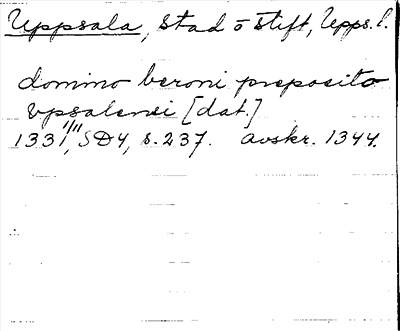 Uppsala, stad o stift, Upps. l.
domino beroni preposito
vpsalensi [dat.]
1331 1/11, SD4, s. 237. Avskr. 1344.